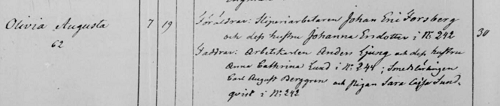 Olivia Augusta 7 19 Föräldrar: Stenarbetaren Johan Eric Forsberg 30
62 och dess hustru Johanna Ersdotter i No 242
Faddrar: Arbetskarlen Anders Ljung och dess hustru
Anna Cathrina Lund i No 244; Smedlärlingen
Carl August Berggren och pigan Sara Cajsa Lund-
qvist i No 242